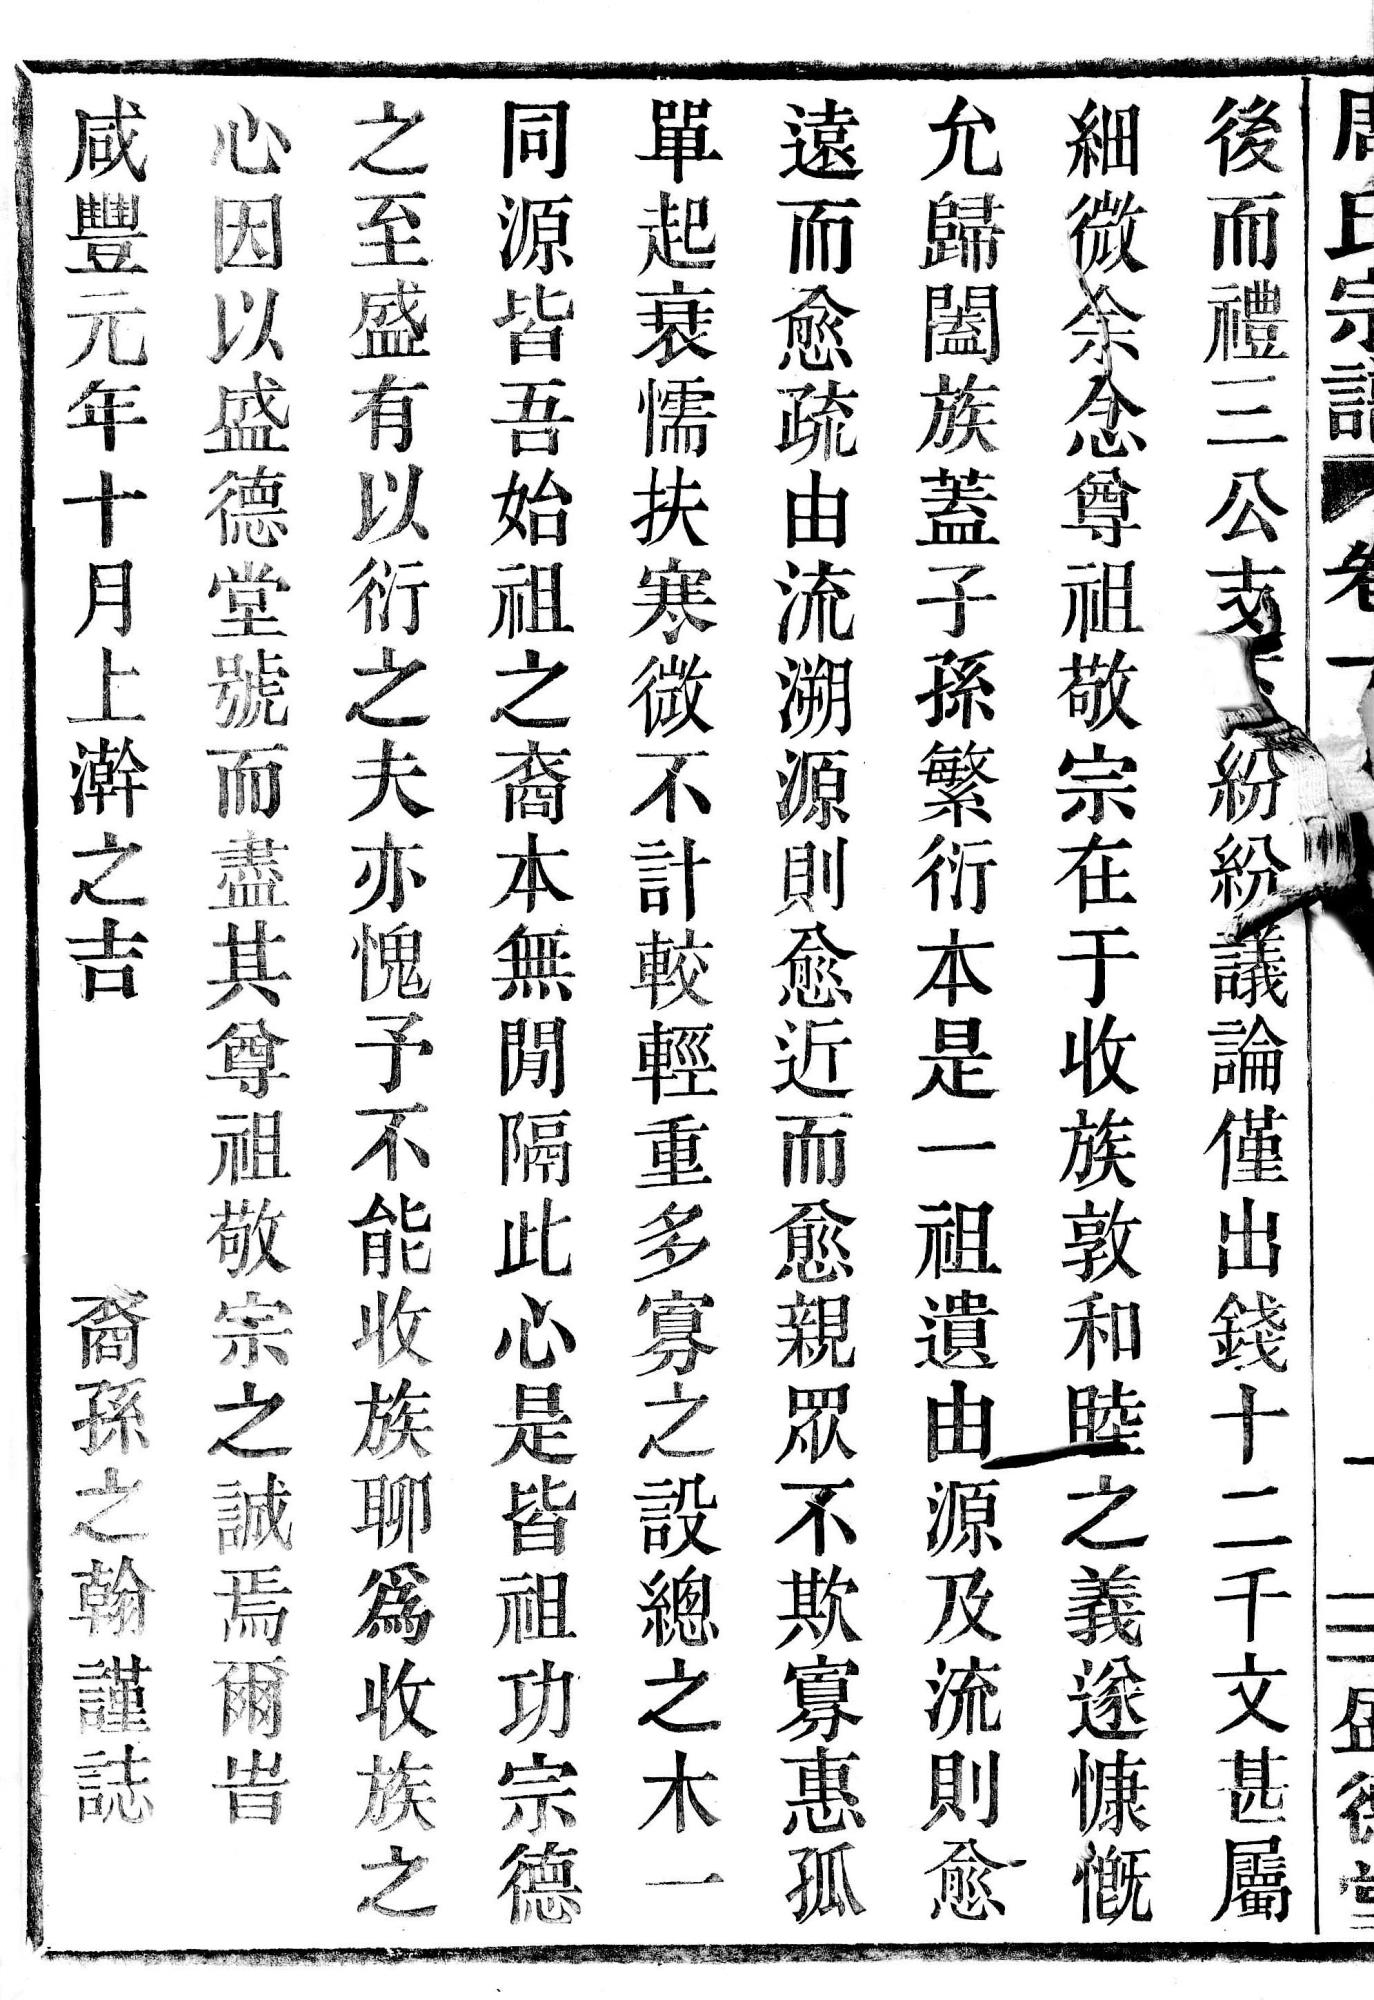 氏宗譜 卷一 二 盛德堂
後而禮三公支 紛紛議論僅出錢十二千文甚屬
細微余念尊祖敬宗在于收族敦和睦之義遂慷慨
允歸闔族蓋子孫繁衍本是一祖遺由源及流則愈
遠而愈疏由流溯源則愈近而愈親眾不欺寡惠孤
單起衰懦扶寒微不計較輕重多寡之設總之木一
同源皆吾始祖之裔本無閒隔此心是皆祖功宗德
之至盛有以衍之夫亦愧予不能收族聊爲收族之
心因以盛德堂號而盡其尊祖敬宗之誠焉爾旹
咸豐元年十月上澣之吉 裔孫之翰謹誌